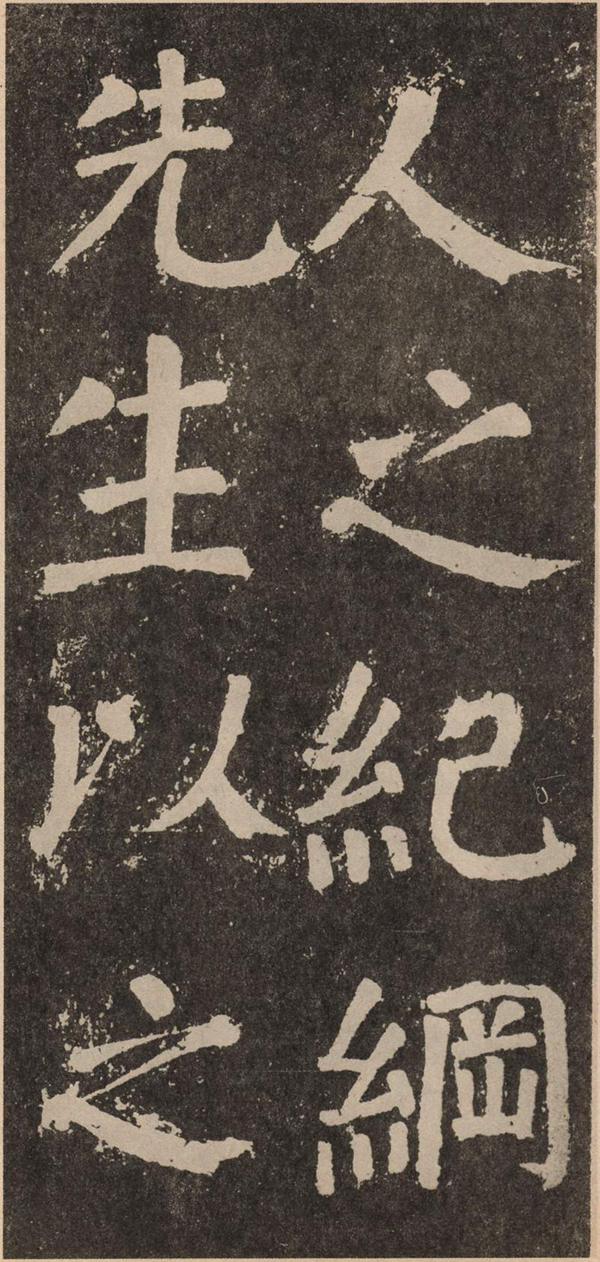 人之紀綱
先生以之